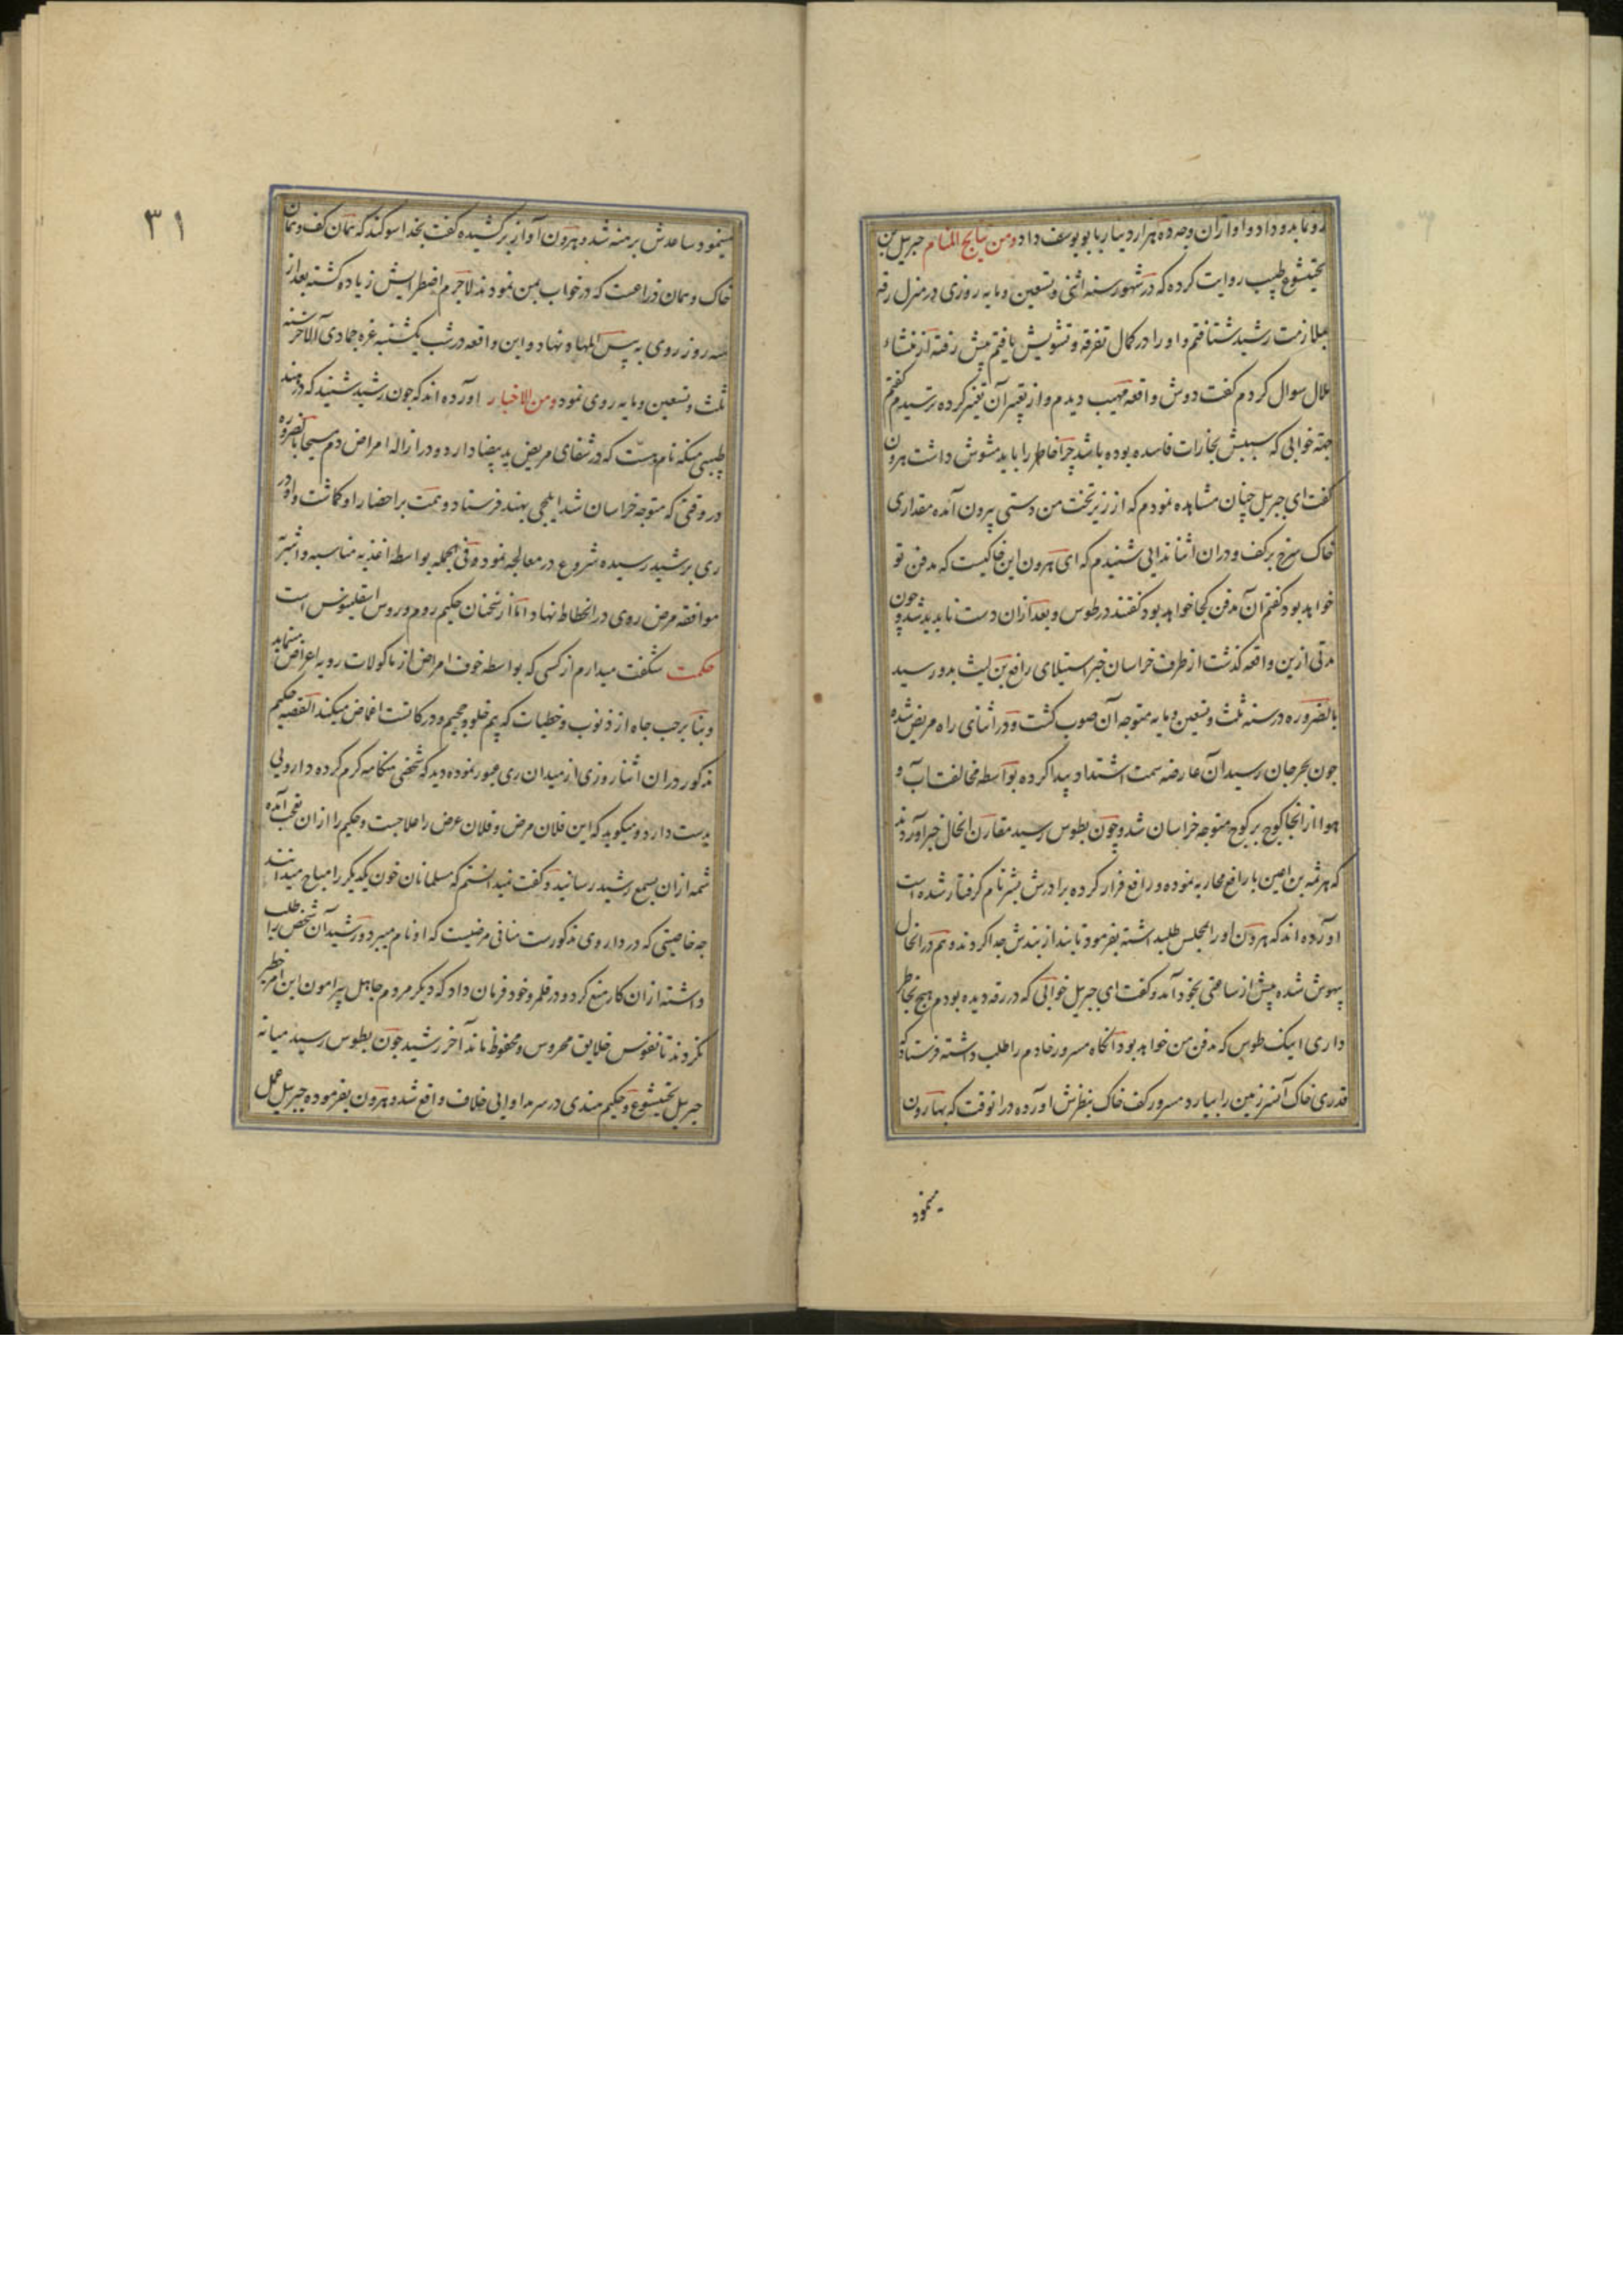 رو نماید و داد و او ازان وجه ده هزار دینار بابو یوسف داد ومن نتایج المنام جبریل بن
بختیشوع طبیب روایت کرده که در شهور سنه اثنی و تسعین و مایه روزی در منزل رقه
بملازمت رشید شتافتم و او را در کمال تفرقه و تشویش یافتم پیش رفته از منشاء
ملال سوال کردم گفت دوش واقعه مهیب دیدم و از تعبیر آن تغیر کرده ترسیدم گفتم
جهة خوابی که سببش بخارات فاسده بوده باشد چرا خاطر را باید مشوش داشت هرون
گفت ای جبریل چنان مشاهده نمودم که از زیر تخت من دستی بیرون آمده مقداری
خاک سرخ بر کف و دران اثنا ندایی شنیدم که ای هرون این خاکیست که مدفن تو
خواهد بود گفتم آن مدفن کجا خواهد بود گفتند در طوس و بعد ازان دست ناپدید شد و چون
مدتی ازین واقعه گذشت از طرف خراسان خبر استیلای رافع بن لیث بدو رسید
بالضروره در سنه ثلث و تسعین و مایه متوجه آن صوب گشت و در اثنای راه مریض شده
چون بجرجان رسید آن عارضه سمت اشتداد پیدا کرده بواسطه مخالفت آب و
هوا از انجا کوچ بر کوچ متوجه خراسان شد و چون بطوس رسید مقارن انحال خبر آوردند
که هرثمه بن اعین با رافع محاربه نموده و رافع فرار کرده برادرش بشر نام گرفتار شده است
آورده اند که هرون او را بمجلس طلبداشته بفرمود تا بند از بندش جدا کردند و هم در انحال
بیهوش شده پیش از ساعتی بخود آمد و گفت ای جبریل خوابی که در رقه دیده بودم هیچ بخاطر
داری اینک طوس که مدفن من خواهد بود آنگاه مسرور خادم را طلب داشته فرستاد که
قدری خاک آنسرزمین را بیارد مسرور کف خاک بنظرش آورده در انوقت که بهارون
مینمود
۳۱
مینمود ساعدش برهنه شد و هرون آواز برکشیده گفت بخدا سوگند که همان کف و همان
خاک و همان ذراعست که در خواب بمن نمودند لاجرم اضطرابش زیاده گشته بعد از
سه روز روی به پس المهاد نهاد و این واقعه در شب یکشنبه غره جمادی الاخر سنه
ثلث و تسعین و مایه روی نمود ومن الاخبار آورده اند که چون رشید شنید که در هند
طبیبی منکه نام هست که در شفای مریض ید بیضا دارد و در ازاله امراض دم مسیحا بالضروره
در وقتی که متوجه خراسان شد ایلچی بهند فرستاد و همت بر احضار او گماشت و او در
ری برشید رسیده شروع در معالجه نمود و فی الجمله بواسطه اغذیه مناسبه و اشربه
موافقه مرض روی در انحطاط نهاد اما از سخنان حکیم روم وروس اسقلینوس است
حکمت شگفت میدارم از کسی که بواسطه خوف امراض از ماکولات رویه اعراض مینماید
و بنا بر حب جاه از ذنوب و خطیات که بیم خلود جحیم و درکاتست اغماض میکند القصه حکیم
مذکور در ان اثنا روزی از میدان ری عبور نموده دید که شخصی هنگامه گرم کرده دارویی
بدست دارد و میگوید که این فلان مرض و فلان عرض را علاجست و حکیم را ازان تعجب آمده
شمه ازان بسمع رشید رسانید و گفت نمیدانستم که مسلمانان خون یکدیگر را مباح میدانند
چه خاصیتی که در داروی مذکورست منافی مرضیست که او نام میبرد و رشید آن شخص را طلب
داشته ازان کار منع کرد و در قلمرو خود فرمان داد که دیگر مردم جاهل پیرامون این امر خطیر
نگردند تا نفوس خلایق محروس و محفوظ ماند آخر رشید چون بطوس رسید میانه
جبریل بختیشوع و حکیم هندی در سر مداوایی خلاف واقع شد و هرون بفرموده جبریل عمل